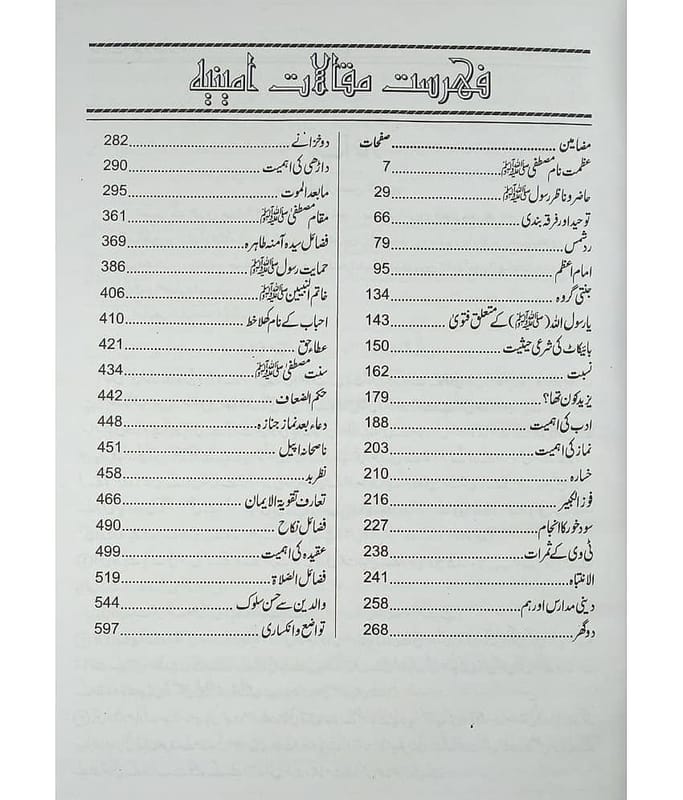 فہرست مقالات امینیہ
مضامین ........ صفحات
عظمت نام مصطفیٰ ﷺ ........ 7
حاضر و ناظر رسول ﷺ ........ 29
توحید اور فرقہ بندی ........ 66
رد شمس ........ 79
امام اعظم ........ 95
جنتی گروہ ........ 134
یا رسول اللہ (ﷺ) کے متعلق فتویٰ ........ 143
بائیکاٹ کی شرعی حیثیت ........ 150
نسبت ........ 162
یزید کون تھا؟ ........ 179
ادب کی اہمیت ........ 188
نماز کی اہمیت ........ 203
خسارہ ........ 210
فوز الکبیر ........ 216
سود خور کا انجام ........ 227
ٹی وی کے ثمرات ........ 238
الانتباہ ........ 241
دینی مدارس اور ہم ........ 258
دو گھر ........ 268
دو خزانے ........ 282
داڑھی کی اہمیت ........ 290
ما بعد الموت ........ 295
مقام مصطفیٰ ﷺ ........ 361
فضائل سیدہ آمنہ طاہرہ ........ 369
حمایت رسول ﷺ ........ 386
خاتم النبیین ﷺ ........ 406
احباب کے نام کھلا خط ........ 410
عطاء حق ........ 421
سنت مصطفیٰ ﷺ ........ 434
حکم الضعاف ........ 442
دعاء بعد نماز جنازہ ........ 448
ناصحانہ اپیل ........ 451
نظر بد ........ 458
تعارف تقویۃ الایمان ........ 466
فضائل نکاح ........ 490
عقیدہ کی اہمیت ........ 499
فضائل الصلاۃ ........ 519
والدین سے حسن سلوک ........ 544
تواضع و انکساری ........ 597